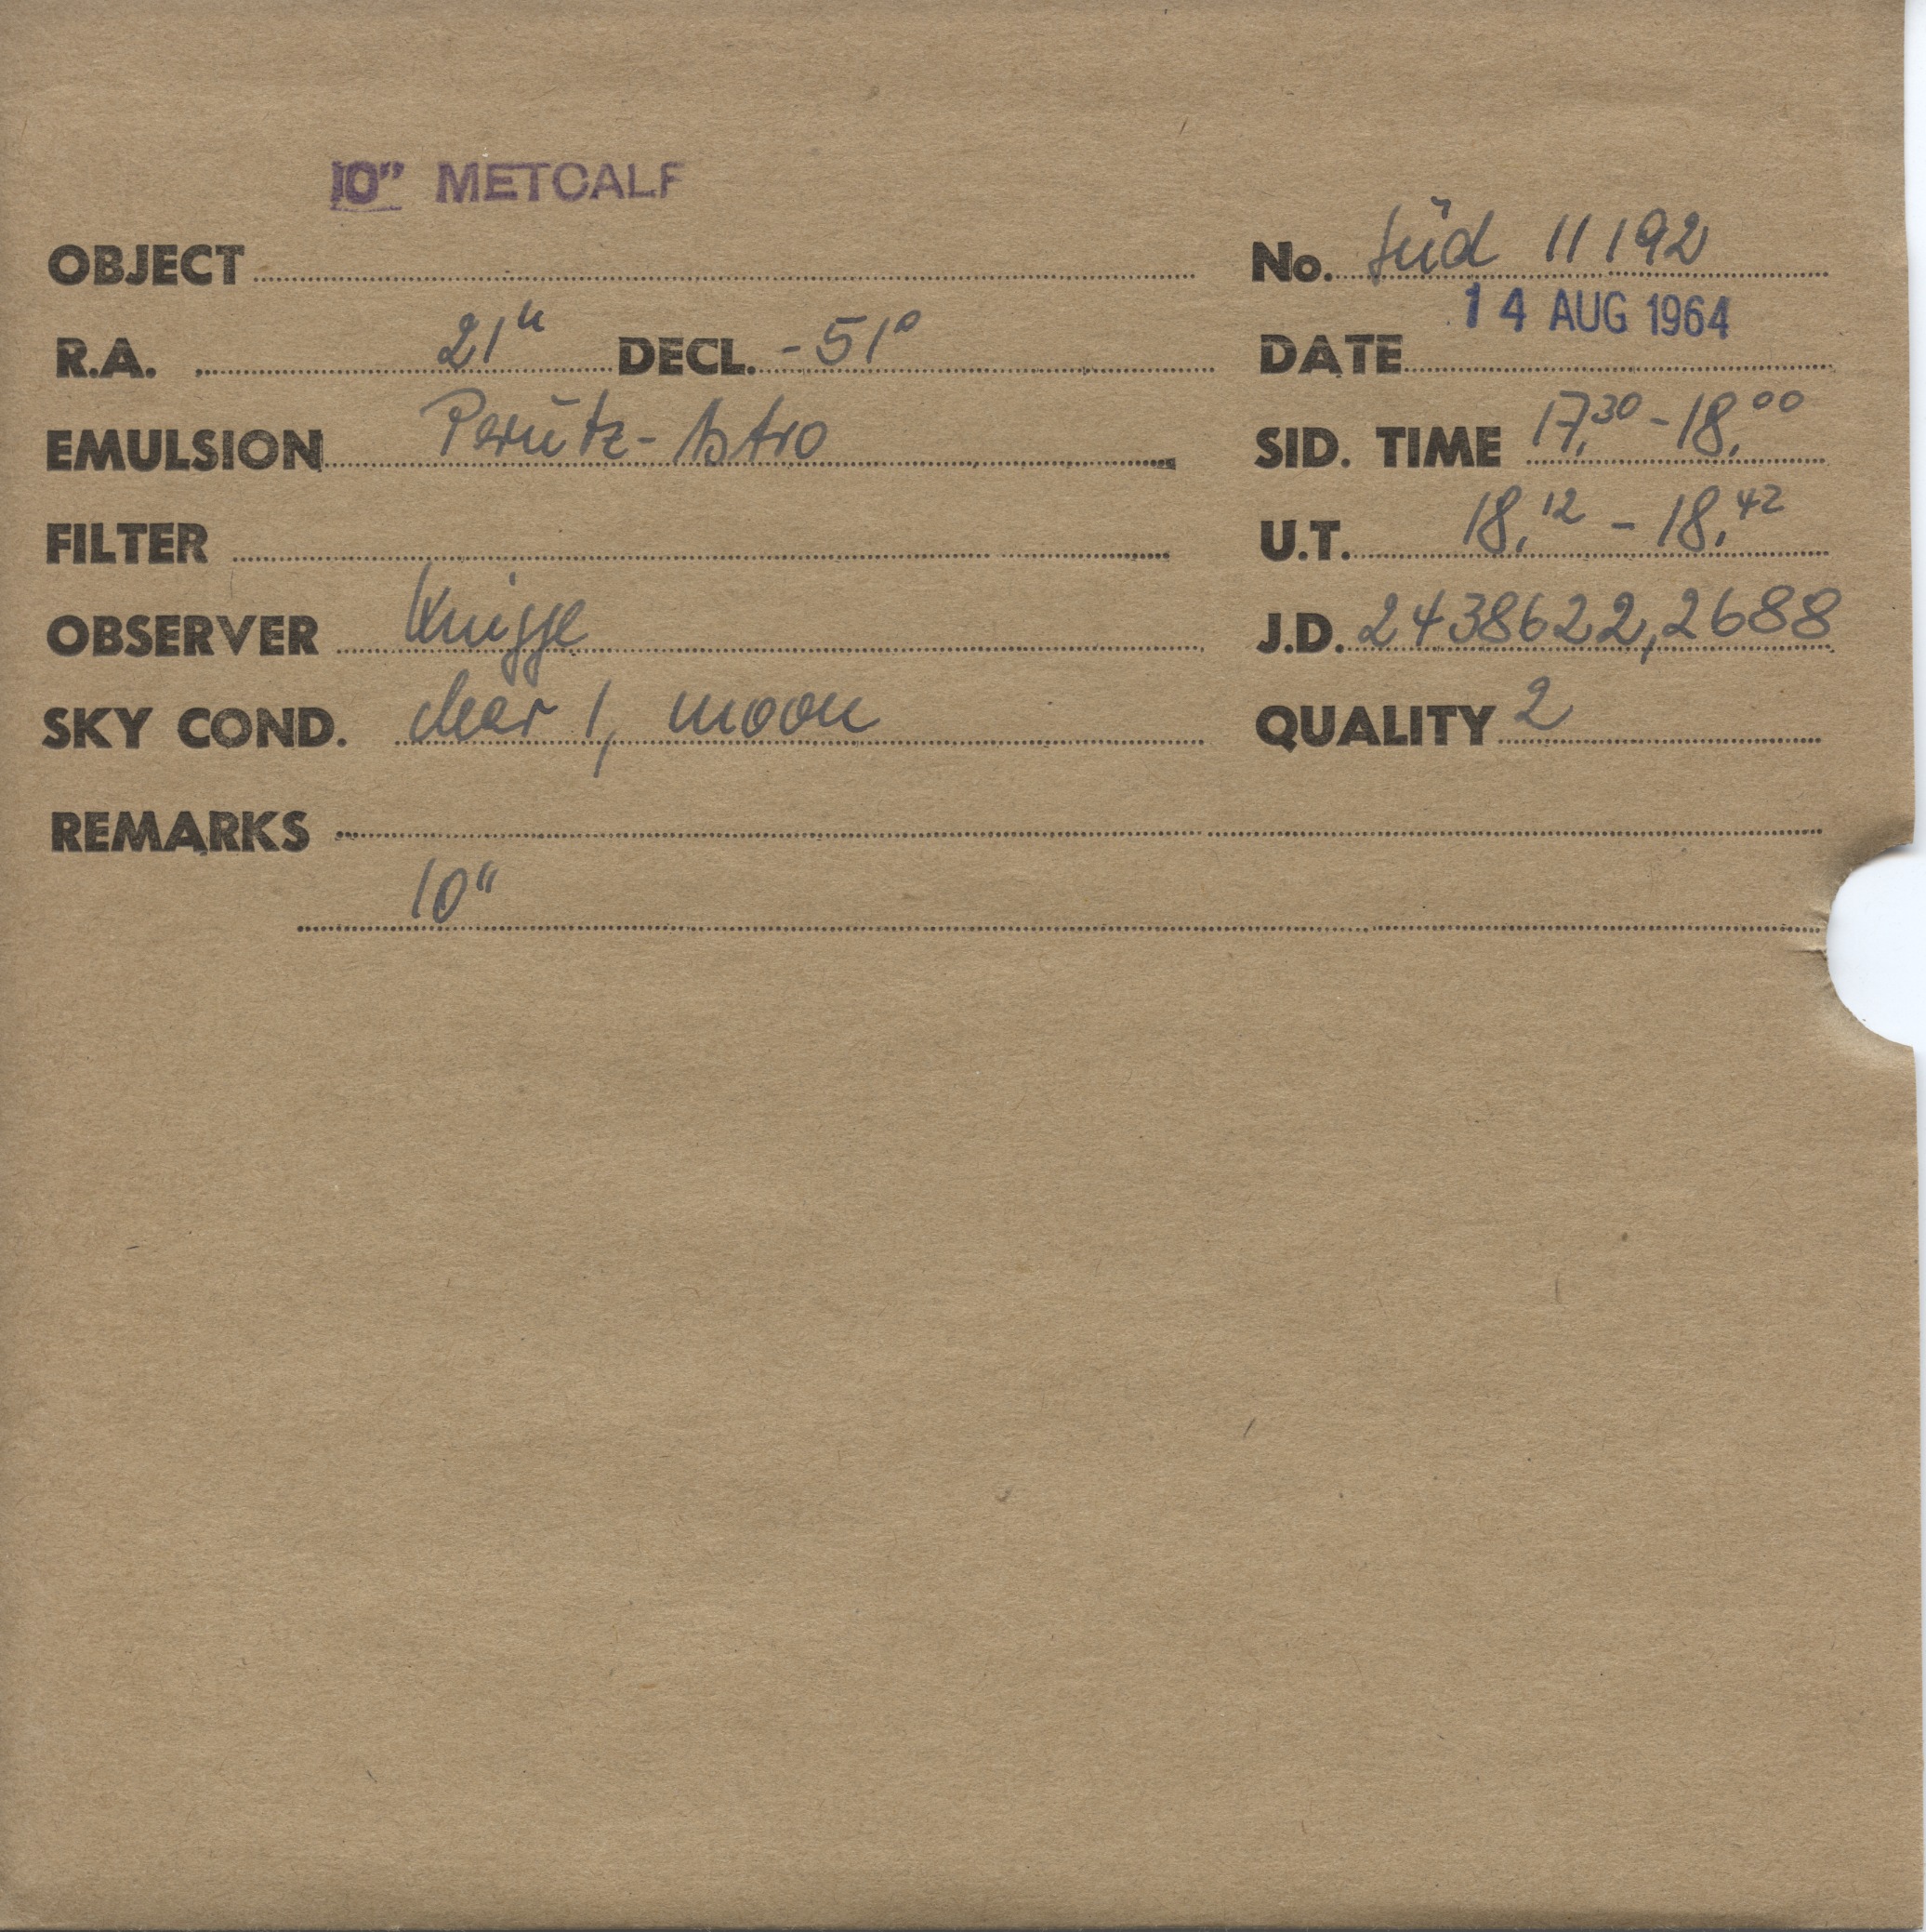 10" METCALF
OBJECT
No. Süd 11192
R.A. 21h DECL. -51°
DATE 14 AUG 1964
EMULSION Perutz-Astro
SID. TIME 17,30 - 18,00
FILTER
U.T. 18,12 - 18,42
OBSERVER Knigge
J.D. 2438622,2688
SKY COND. clear 1, moon
QUALITY 2
REMARKS
10"